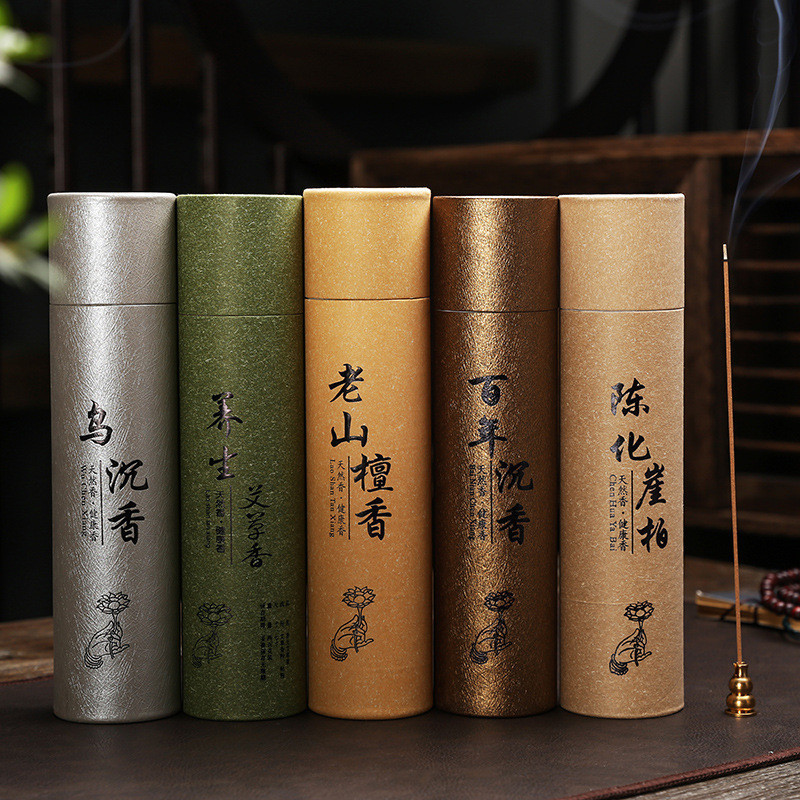 乌沉香
天然香·健康香
Wu Chen Xiang
养生艾草香
天然香·健康香
老山檀香
天然香·健康香
Lao Shan Tan Xiang
百年沉香
天然香·健康香
Bai Nian Chen Xiang
陈化崖柏
天然香·健康香
Chen Hua Ya Bai